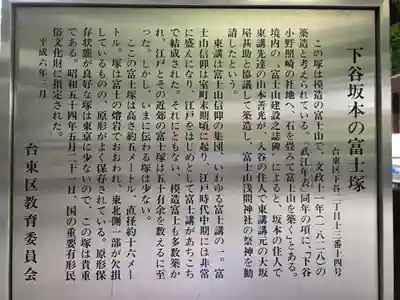 下谷坂本の富士塚
台東区下谷二丁目十三番十四号
この塚は模造の富士山で、文政十一年(一八二八)の
築造と考えられている。『武江年表』同年の項に、「下谷
小野照崎の社地へ、石を畳みて富士山を築く」とある。
境内の「富士山建設之誌碑」によると、坂本の住人で
東講先達の山本善光が、入谷の住人で東講講元の大坂
屋甚助と協議して築造し、富士山浅間神社の祭神を勧
請したという。
東講は富士山信仰の集団、いわゆる富士講の一。富
士山信仰は室町末期頃に起り、江戸時代中期には非常
に盛んになり、江戸をはじめとして富士講があちこち
で結成された。それにともない、模造富士も多数築か
れ、江戸とその近郊の富士塚は五十有余を数えるに至
った。しかし、いまに伝わる塚は少ない。
ここの富士塚は高さ約五メートル、直径約十六メー
トル。塚は富士の熔岩でおおわれ、東北側一部が欠損
しているものの、原形がよく保存されている。原形保
存状態が良好な塚は東京に少ないので、この塚は貴重
である。昭和五十四年五月二十一日、国の重要有形民
俗文化財に指定された。
平成六年三月
台東区教育委員会